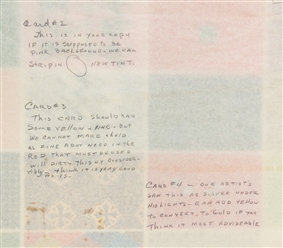 Card #2
This is in your hands
if it is supposed to be
pink background we can
strip in NEW TINT.
CARD #3
This card should have
some yellow
we cannot make gold
as fine and need in the
Red that
will dirty this up consider-
ably - I think it is very good
As is.
CARD #4 - Our artist's
saw this as silver under
highlights - can add yellow
to convert to gold if you
think is most advisable